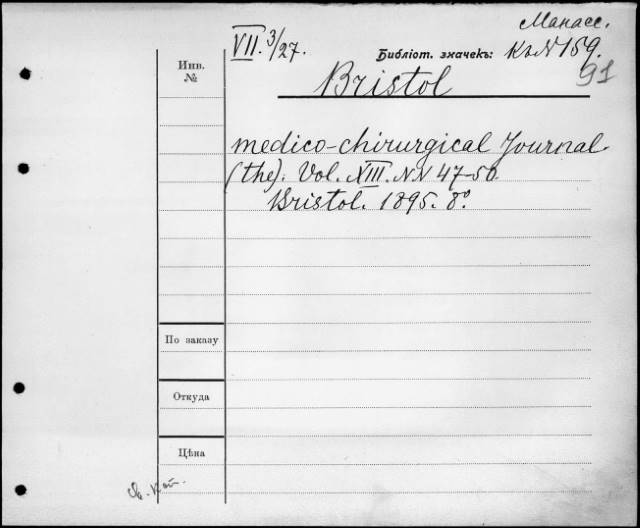 Манасс.
VII. 3/27.
Библіот. значекъ: К. №159.
91
Инв. №
Bristol
medico-chirurgical Journal.
(the). Vol. XIII. NN 47-50.
Bristol. 1895. 8º.
По заказу
Откуда
Цѣна